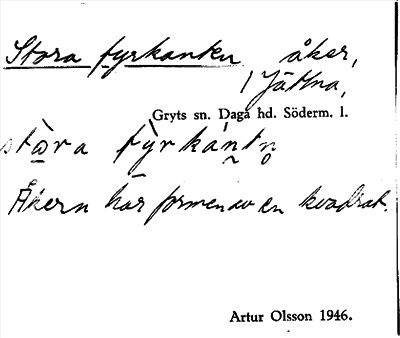 Stora fyrkanten, åker,
/ Jättna,
Gryts sn. Daga hd. Söderm. l.
stòra fỳrkántn̥
Åkern har formen av en kvadrat.
Artur Olsson 1946.